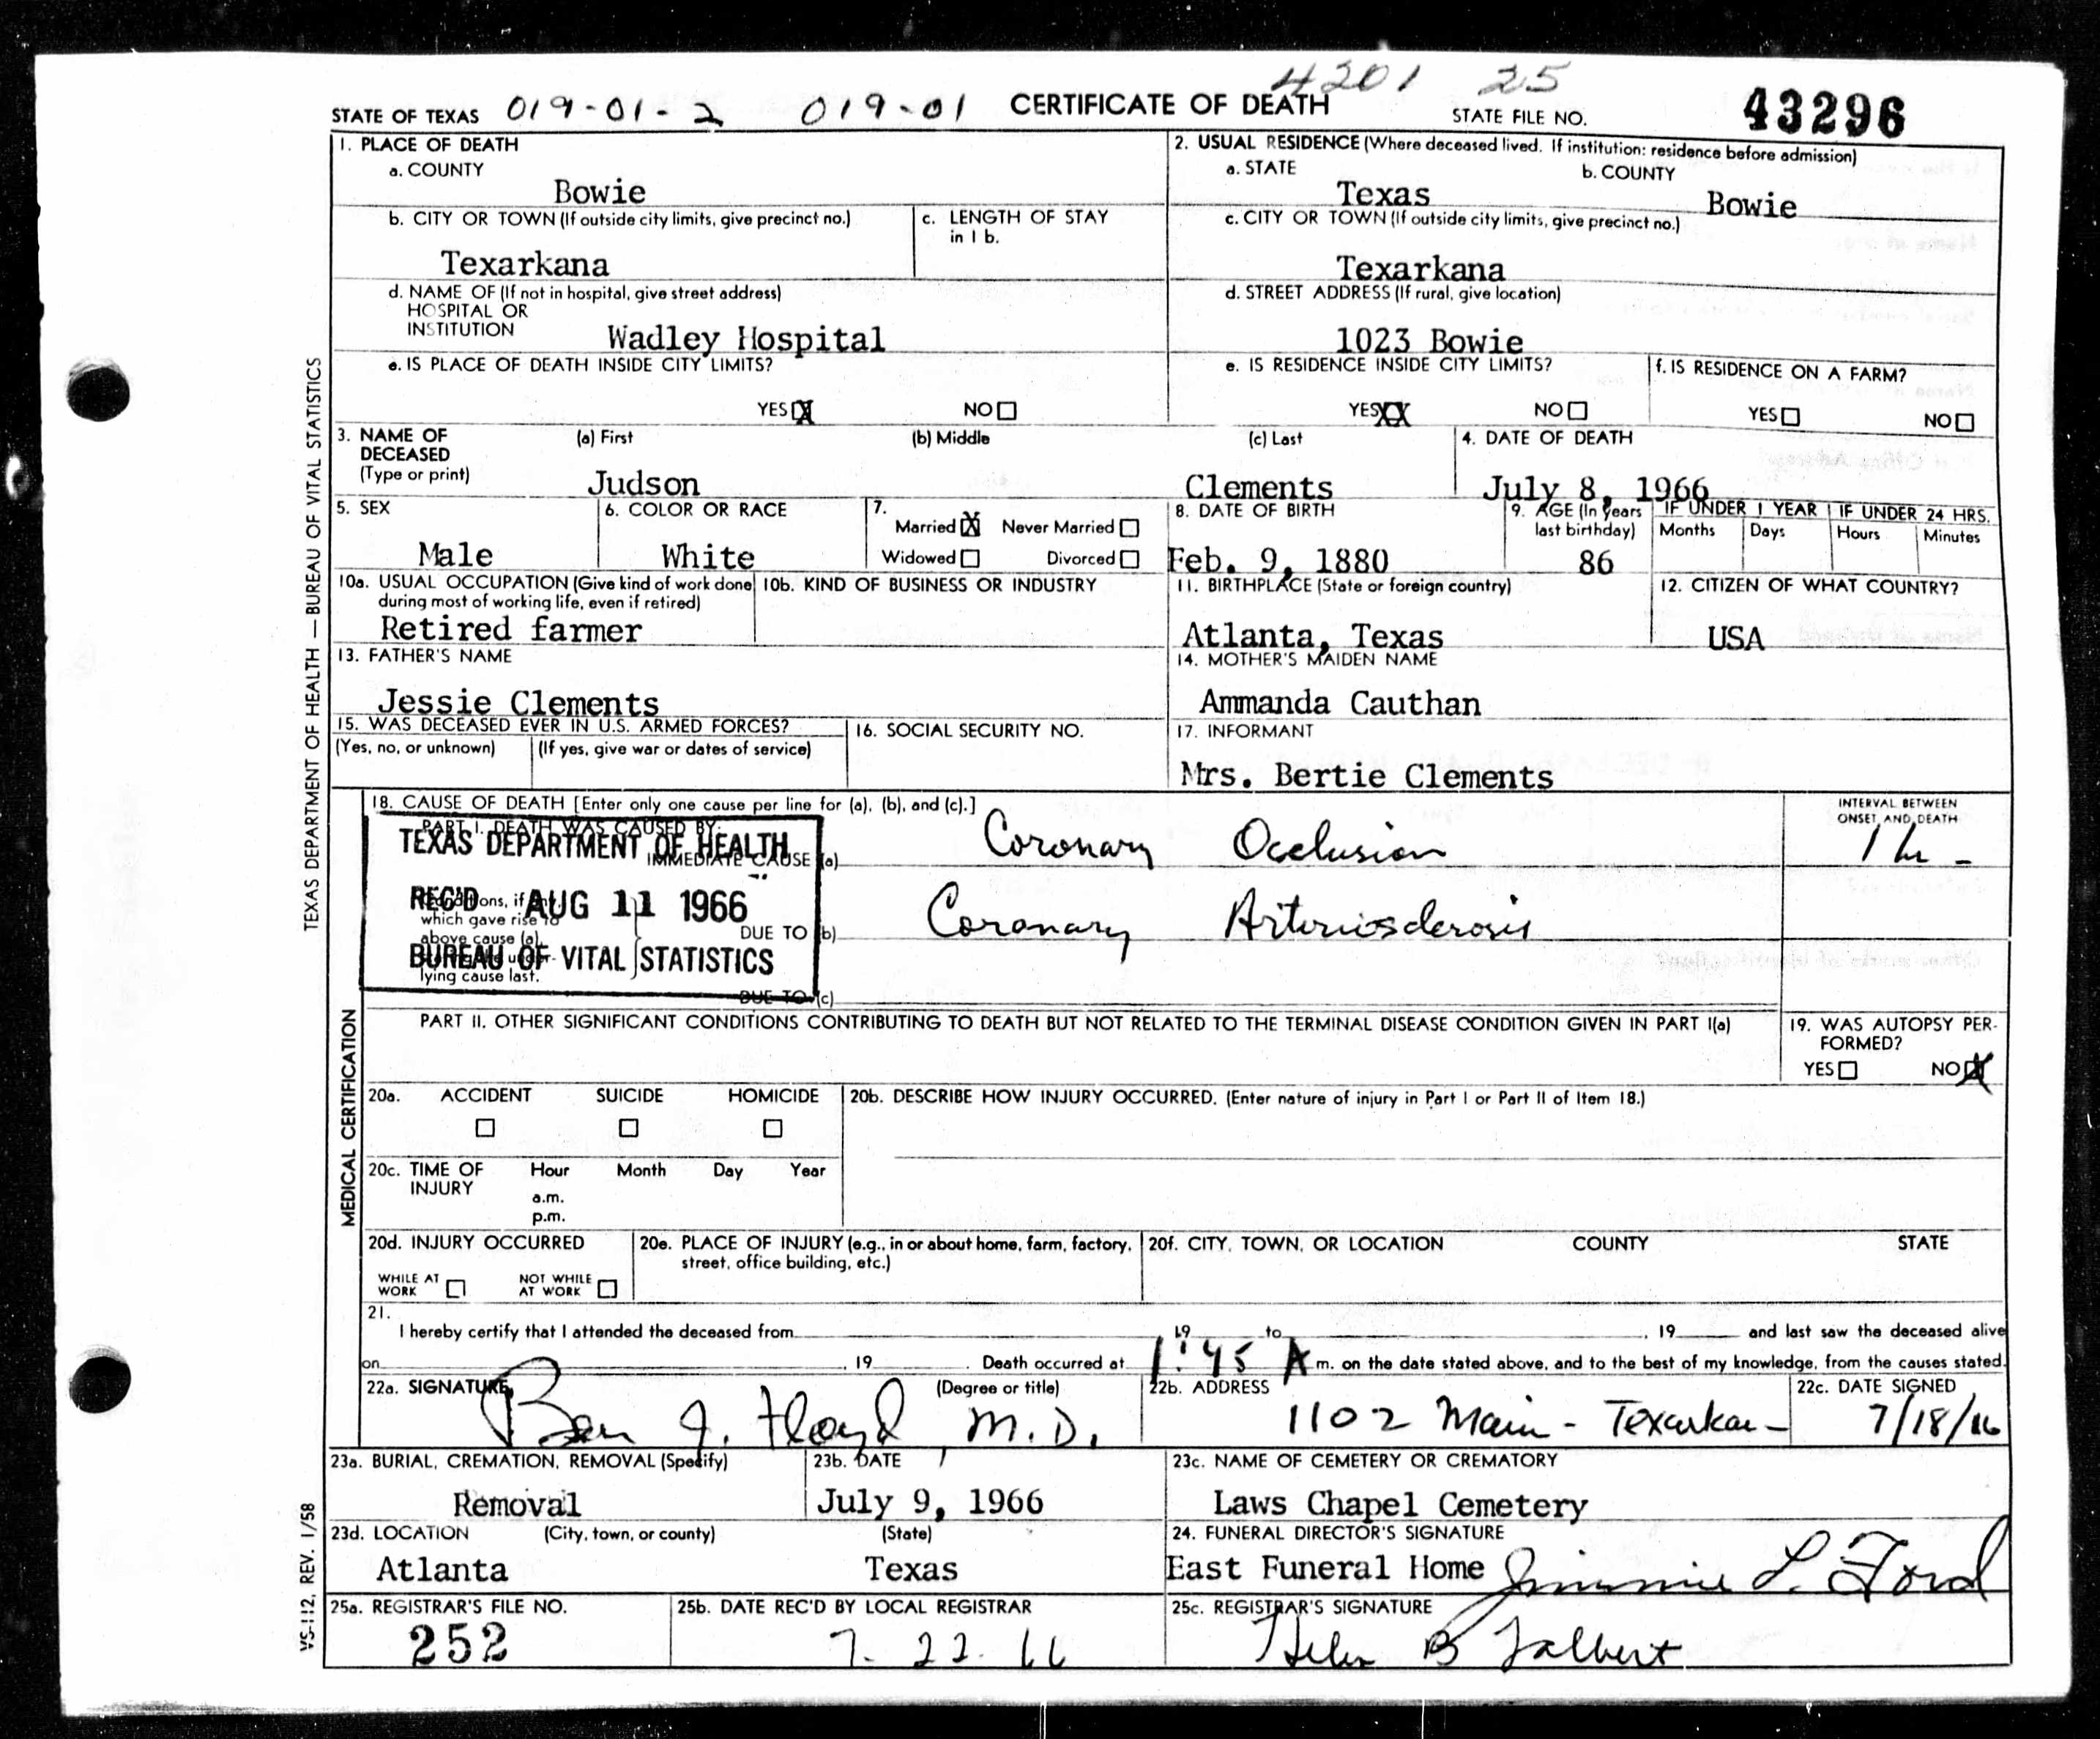 4201 25
STATE OF TEXAS 019-01-2 019-01 CERTIFICATE OF DEATH STATE FILE NO. 43296
1. PLACE OF DEATH
a. COUNTY
Bowie
2. USUAL RESIDENCE (Where deceased lived. If institution: residence before admission)
a. STATE b. COUNTY
Texas Bowie
b. CITY OR TOWN (If outside city limits, give precinct no.)
Texarkana
c. LENGTH OF STAY
in 1 b.
c. CITY OR TOWN (If outside city limits, give precinct no.)
Texarkana
d. NAME OF (If not in hospital, give street address)
HOSPITAL OR
INSTITUTION Wadley Hospital
d. STREET ADDRESS (If rural, give location)
1023 Bowie
e. IS PLACE OF DEATH INSIDE CITY LIMITS?
YES X NO
e. IS RESIDENCE INSIDE CITY LIMITS?
YES XX NO
f. IS RESIDENCE ON A FARM?
YES NO
3. NAME OF
DECEASED
(Type or print)
(a) First (b) Middle (c) Last
Judson Clements
4. DATE OF DEATH
July 8, 1966
5. SEX
Male
6. COLOR OR RACE
White
7.
Married X Never Married
Widowed Divorced
8. DATE OF BIRTH
Feb. 9, 1880
9. AGE (In years
last birthday)
86
IF UNDER 1 YEAR
Months Days
IF UNDER 24 HRS.
Hours Minutes
10a. USUAL OCCUPATION (Give kind of work done
during most of working life, even if retired)
Retired farmer
10b. KIND OF BUSINESS OR INDUSTRY
11. BIRTHPLACE (State or foreign country)
Atlanta, Texas
12. CITIZEN OF WHAT COUNTRY?
USA
13. FATHER'S NAME
Jessie Clements
14. MOTHER'S MAIDEN NAME
Ammanda Cauthan
15. WAS DECEASED EVER IN U.S. ARMED FORCES?
(Yes, no, or unknown) (If yes, give war or dates of service)
16. SOCIAL SECURITY NO.
17. INFORMANT
Mrs. Bertie Clements
18. CAUSE OF DEATH [Enter only one cause per line for (a), (b), and (c).]
INTERVAL BETWEEN
ONSET AND DEATH
PART I. DEATH WAS CAUSED BY:
IMMEDIATE CAUSE (a) Coronary Occlusion 1 hr -
TEXAS DEPARTMENT OF HEALTH
REC'D AUG 11 1966
BUREAU OF VITAL STATISTICS
Conditions, if any,
which gave rise to
above cause (a),
lying cause last.
DUE TO (b) Coronary Arteriosclerosis
DUE TO (c)
PART II. OTHER SIGNIFICANT CONDITIONS CONTRIBUTING TO DEATH BUT NOT RELATED TO THE TERMINAL DISEASE CONDITION GIVEN IN PART I(a)
19. WAS AUTOPSY PER-
FORMED?
YES NO X
20a. ACCIDENT SUICIDE HOMICIDE
20b. DESCRIBE HOW INJURY OCCURRED. (Enter nature of injury in Part I or Part II of Item 18.)
20c. TIME OF
INJURY
Hour Month Day Year
a.m.
p.m.
20d. INJURY OCCURRED
WHILE AT
WORK
NOT WHILE
AT WORK
20e. PLACE OF INJURY (e.g., in or about home, farm, factory,
street, office building, etc.)
20f. CITY, TOWN, OR LOCATION COUNTY STATE
21.
I hereby certify that I attended the deceased from 19 to , 19 and last saw the deceased alive
on , 19 . Death occurred at 1:45 A m. on the date stated above, and to the best of my knowledge, from the causes stated.
22a. SIGNATURE (Degree or title)
Ben J. Floyd M.D.
22b. ADDRESS
1102 Main - Texarkana
22c. DATE SIGNED
7/18/66
23a. BURIAL, CREMATION, REMOVAL (Specify)
Removal
23b. DATE
July 9, 1966
23c. NAME OF CEMETERY OR CREMATORY
Laws Chapel Cemetery
23d. LOCATION (City, town, or county) (State)
Atlanta Texas
24. FUNERAL DIRECTOR'S SIGNATURE
East Funeral Home Jimmie L. Ford
25a. REGISTRAR'S FILE NO.
252
25b. DATE REC'D BY LOCAL REGISTRAR
7. 22. 66
25c. REGISTRAR'S SIGNATURE
Helen B Talbert
TEXAS DEPARTMENT OF HEALTH — BUREAU OF VITAL STATISTICS
MEDICAL CERTIFICATION
VS-112, REV. 1/58